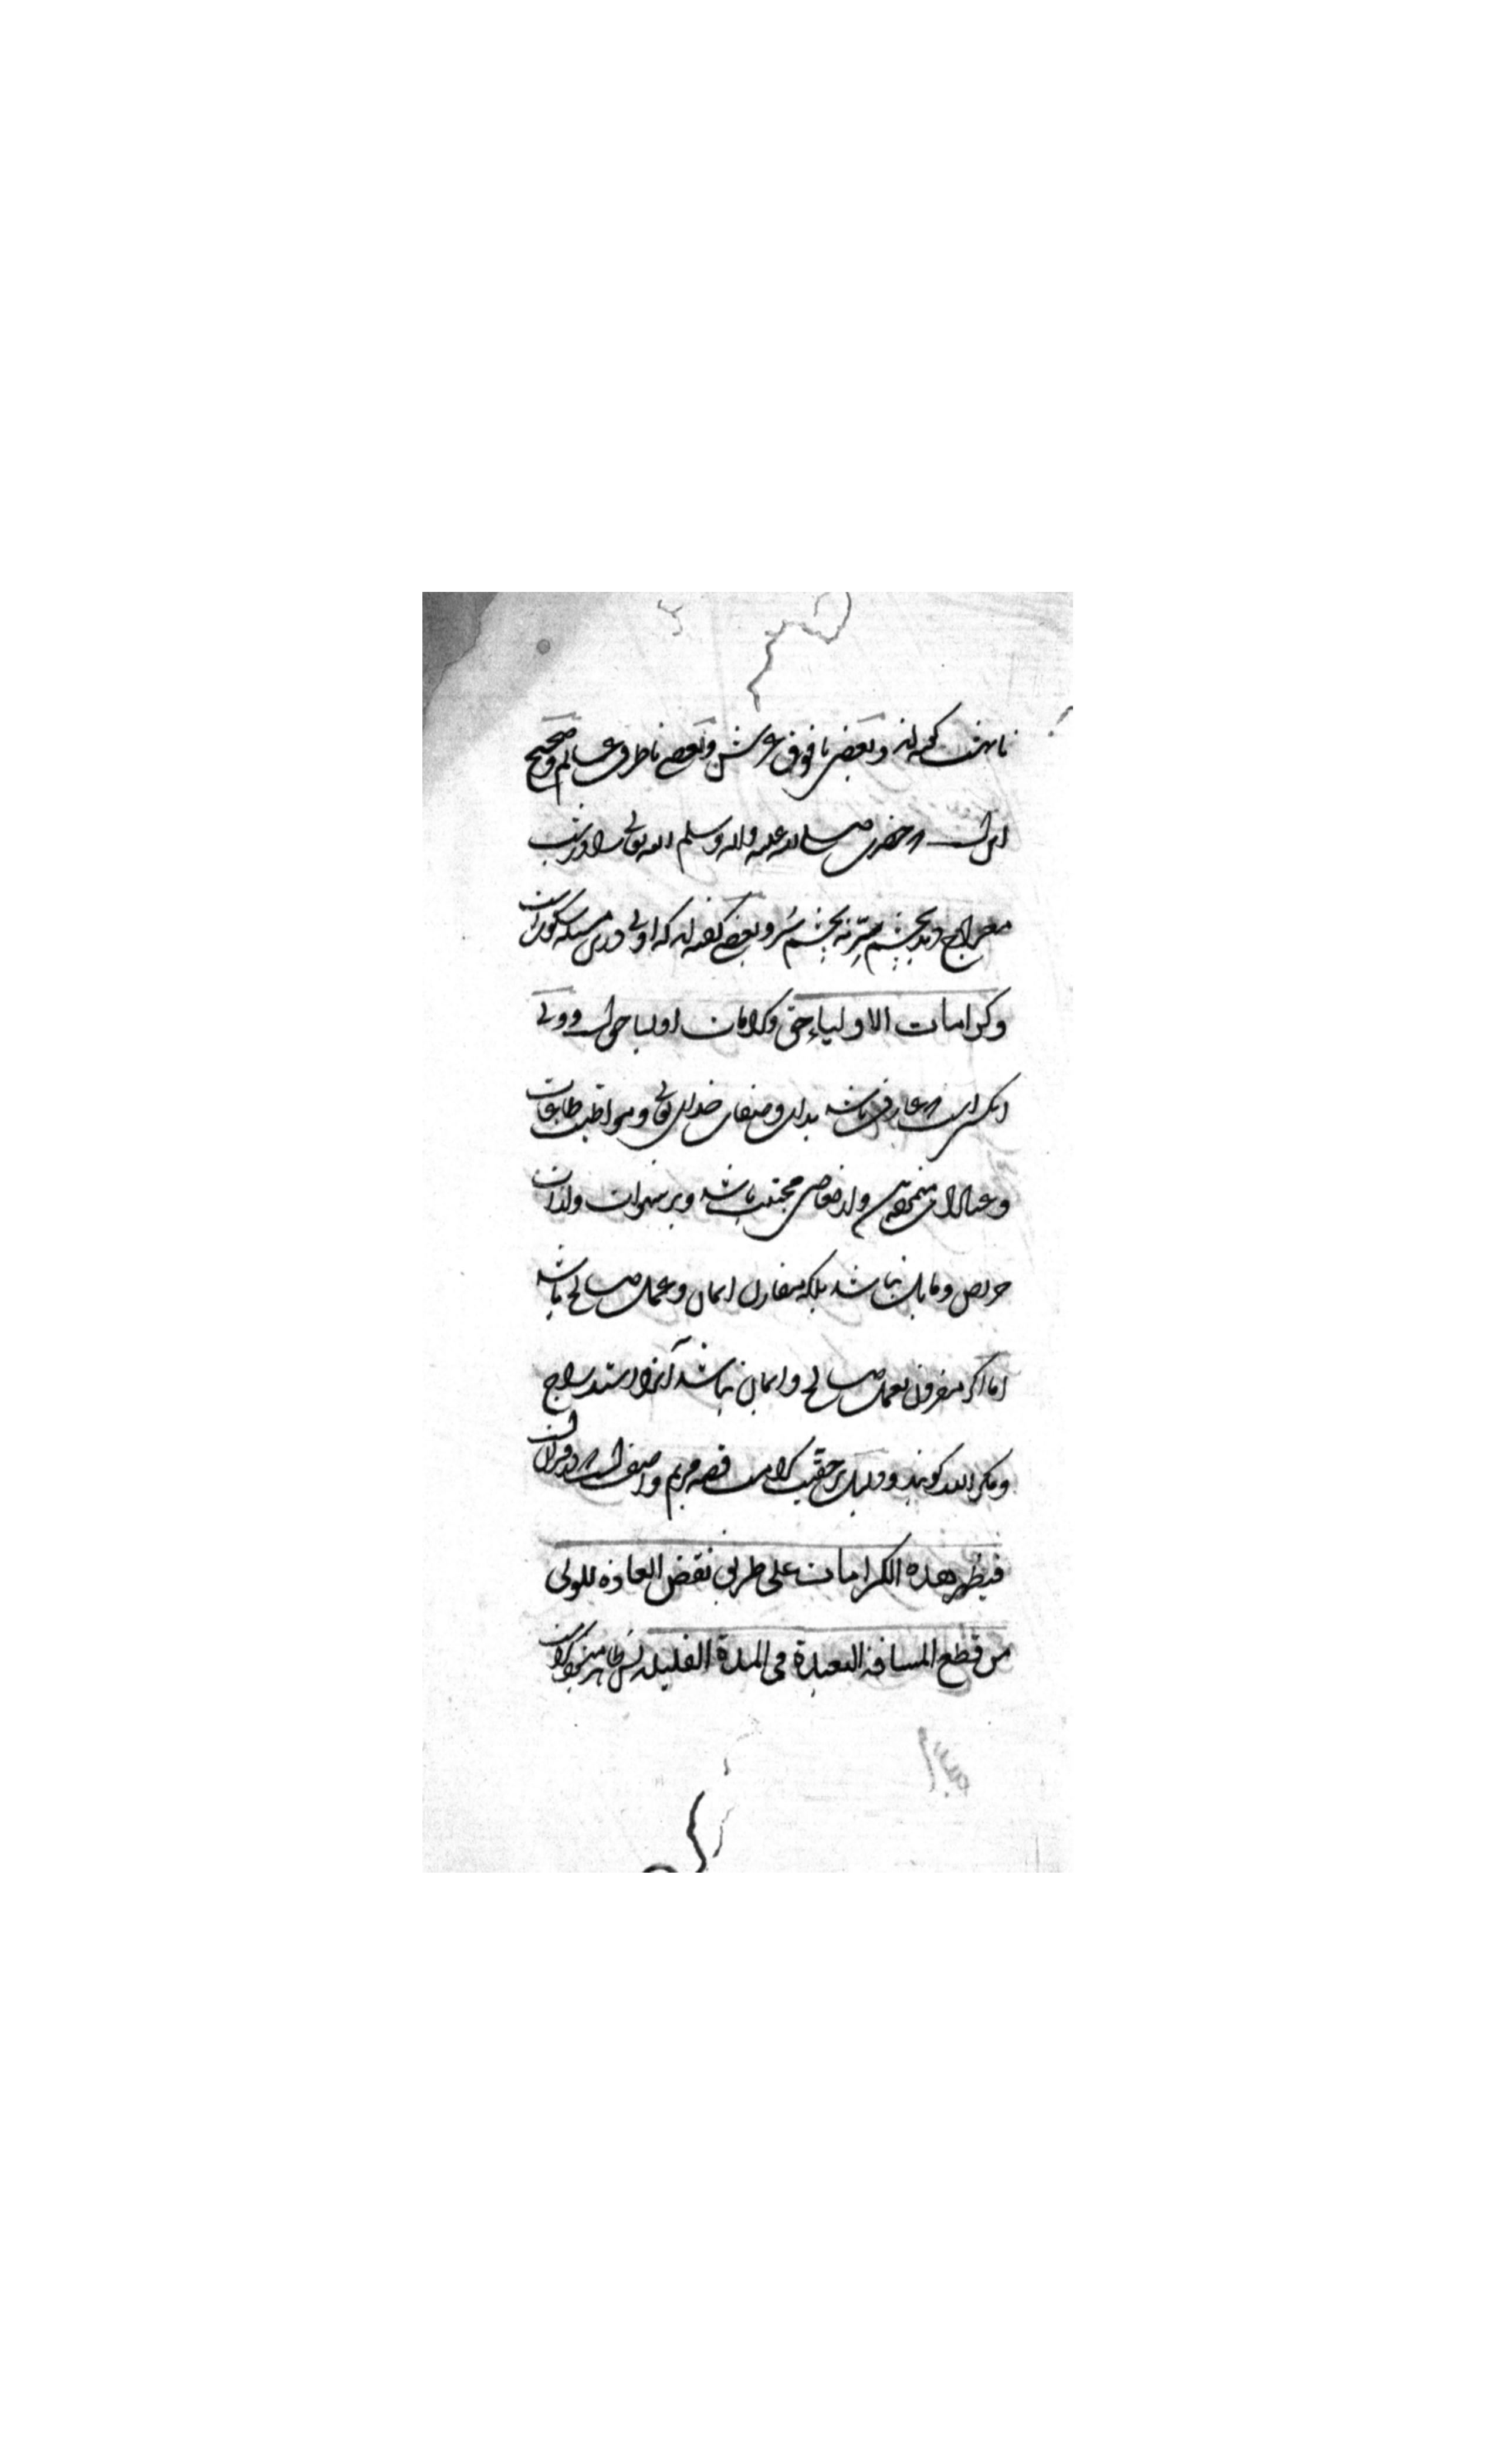 تا بهشت گفته اند و بعضی تا فوق عرش و بعضی تا طرف عالم و صحیح
این است که حضرت صلی الله علیه واله وسلم الله تعالی را در شب
معراج دید بچشم سِرّ نه بچشم سَر و بعضی گفته اند که اولی درین مسئله سکوتست
وکرامات الاولیاء حق وکرامات اولیا حق است و ولی
انکس است که عارف باشد بذات و صفات خدای تعالی و مواظب طاعات
و عبادات و از معاصی مجتنب باشد و بر شهوات ولذات
حریص و مایل نباشد بلکه مقارن ایمان و عمل صالح باشد
اما اگر مقرون بعمل صالح و ایمان نباشد آنرا استدراج
و مکر الله گویند و دلیل بر حقیت کرامت قصه مریم و اصف است که در قرانست
فیظهر هذه الکرامات علی طریق نقض العادة للولی
من قطع المسافة البعیدة فی المدة القلیلة پس ظاهر میشود کرامت